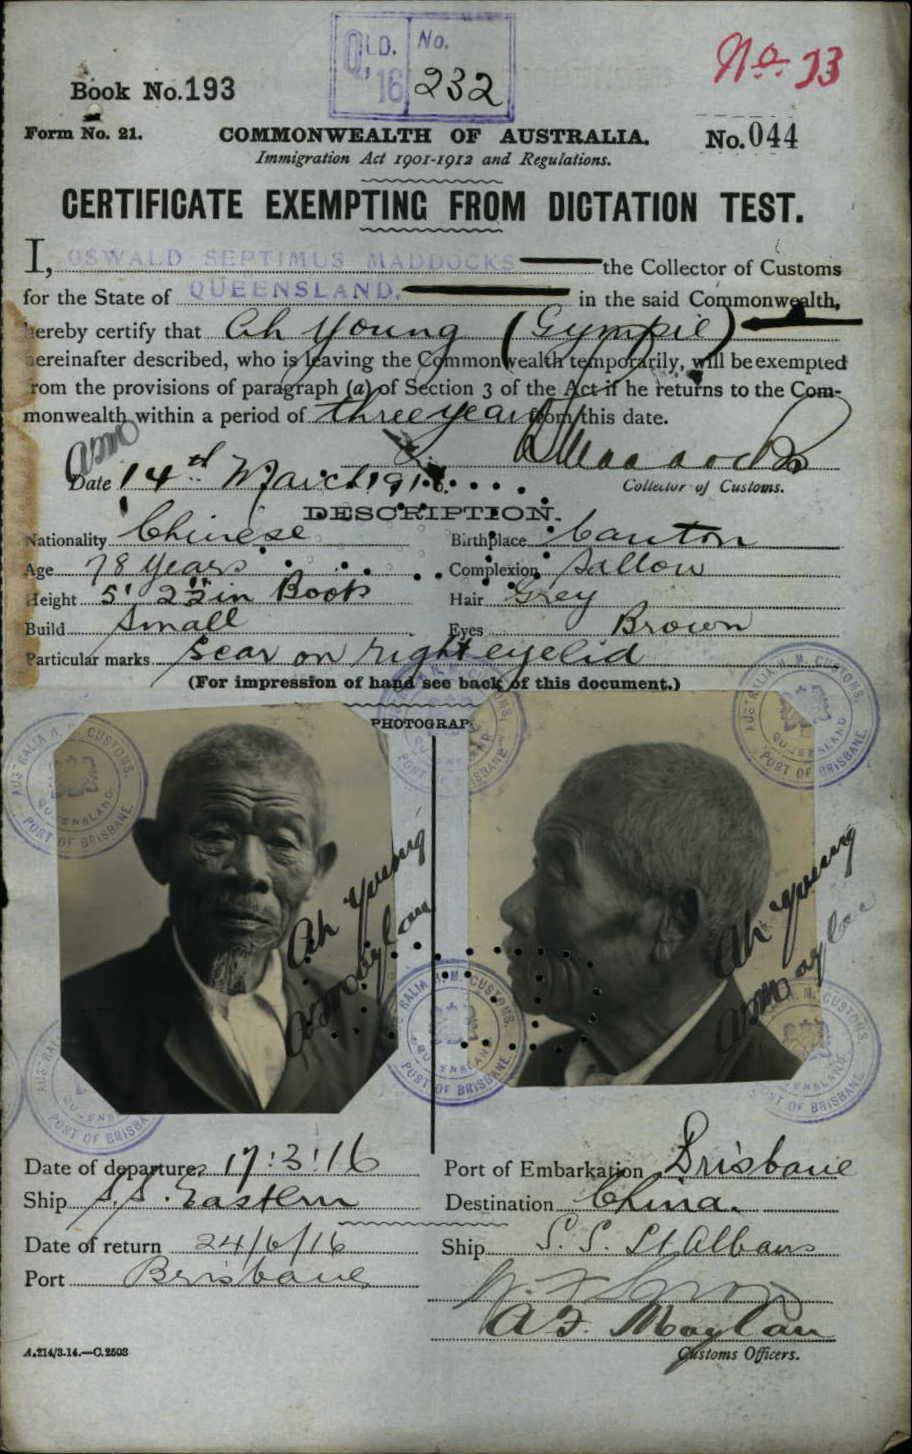 QLD. No.
16 232
No. 33
Book No. 193
Form No. 21. COMMONWEALTH OF AUSTRALIA. No. 044
Immigration Act 1901-1912 and Regulations.
CERTIFICATE EXEMPTING FROM DICTATION TEST.
I, OSWALD SEPTIMUS MADDOCKS the Collector of Customs
for the State of QUEENSLAND. in the said Commonwealth,
hereby certify that Ah Young (Gympie)
hereinafter described, who is leaving the Commonwealth temporarily, will be exempted
from the provisions of paragraph (a) of Section 3 of the Act if he returns to the Com-
monwealth within a period of three years from this date.
Date 14th March 1916. Collector of Customs.
DESCRIPTION.
Nationality Chinese Birthplace Canton
Age 78 Years Complexion Sallow
Height 5' 2½ in Boots Hair Grey
Build Small Eyes Brown
Particular marks Scar on right eyelid
(For impression of hand see back of this document.)
PHOTOGRAP
AUSTRALIA H. M. CUSTOMS. QUEENSLAND. PORT OF BRISBANE.
Ah Young
Ah Young
Date of departure 17:3:16 Port of Embarkation Brisbane
Ship S.S. Eastern Destination China.
Date of return 24/6/16 Ship S. S. St Albans
Port Brisbane
A F. Moylan
A.214/3.14.—C.2503 Customs Officers.